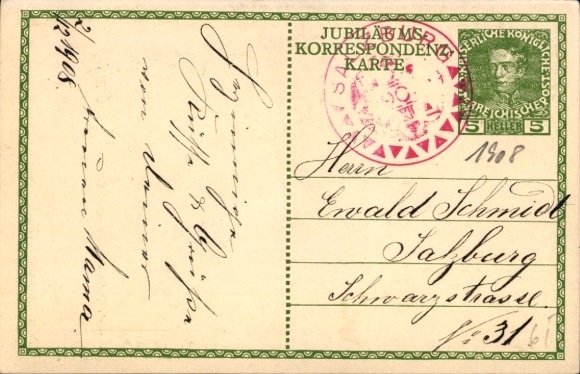 JUBILÄUMS-
KORRESPONDENZ-
KARTE
KAISERLICHE KÖNIGLICHE
ÖSTERREICHISCHE POST
5 HELLER 5
SALZBURG
1908
Herrn
Ewald Schmidt
Salzburg
Schwarzstrasse
No 31
2/12 1908.
Innige
Küsse & Grüsse
von Deiner
Mama